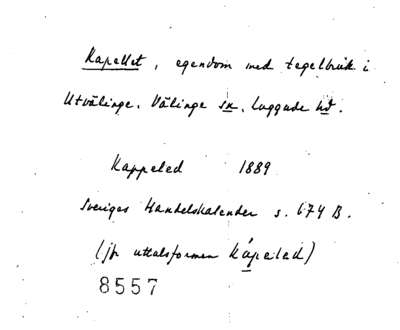 Kapellet, egendom med tegelbruk i
Utvälinge. Välinge sn, Luggude hd.
Kappeled 1889
Sveriges Handelskalender s. 674 B.
(jfr uttalsformen kápeled)
8557